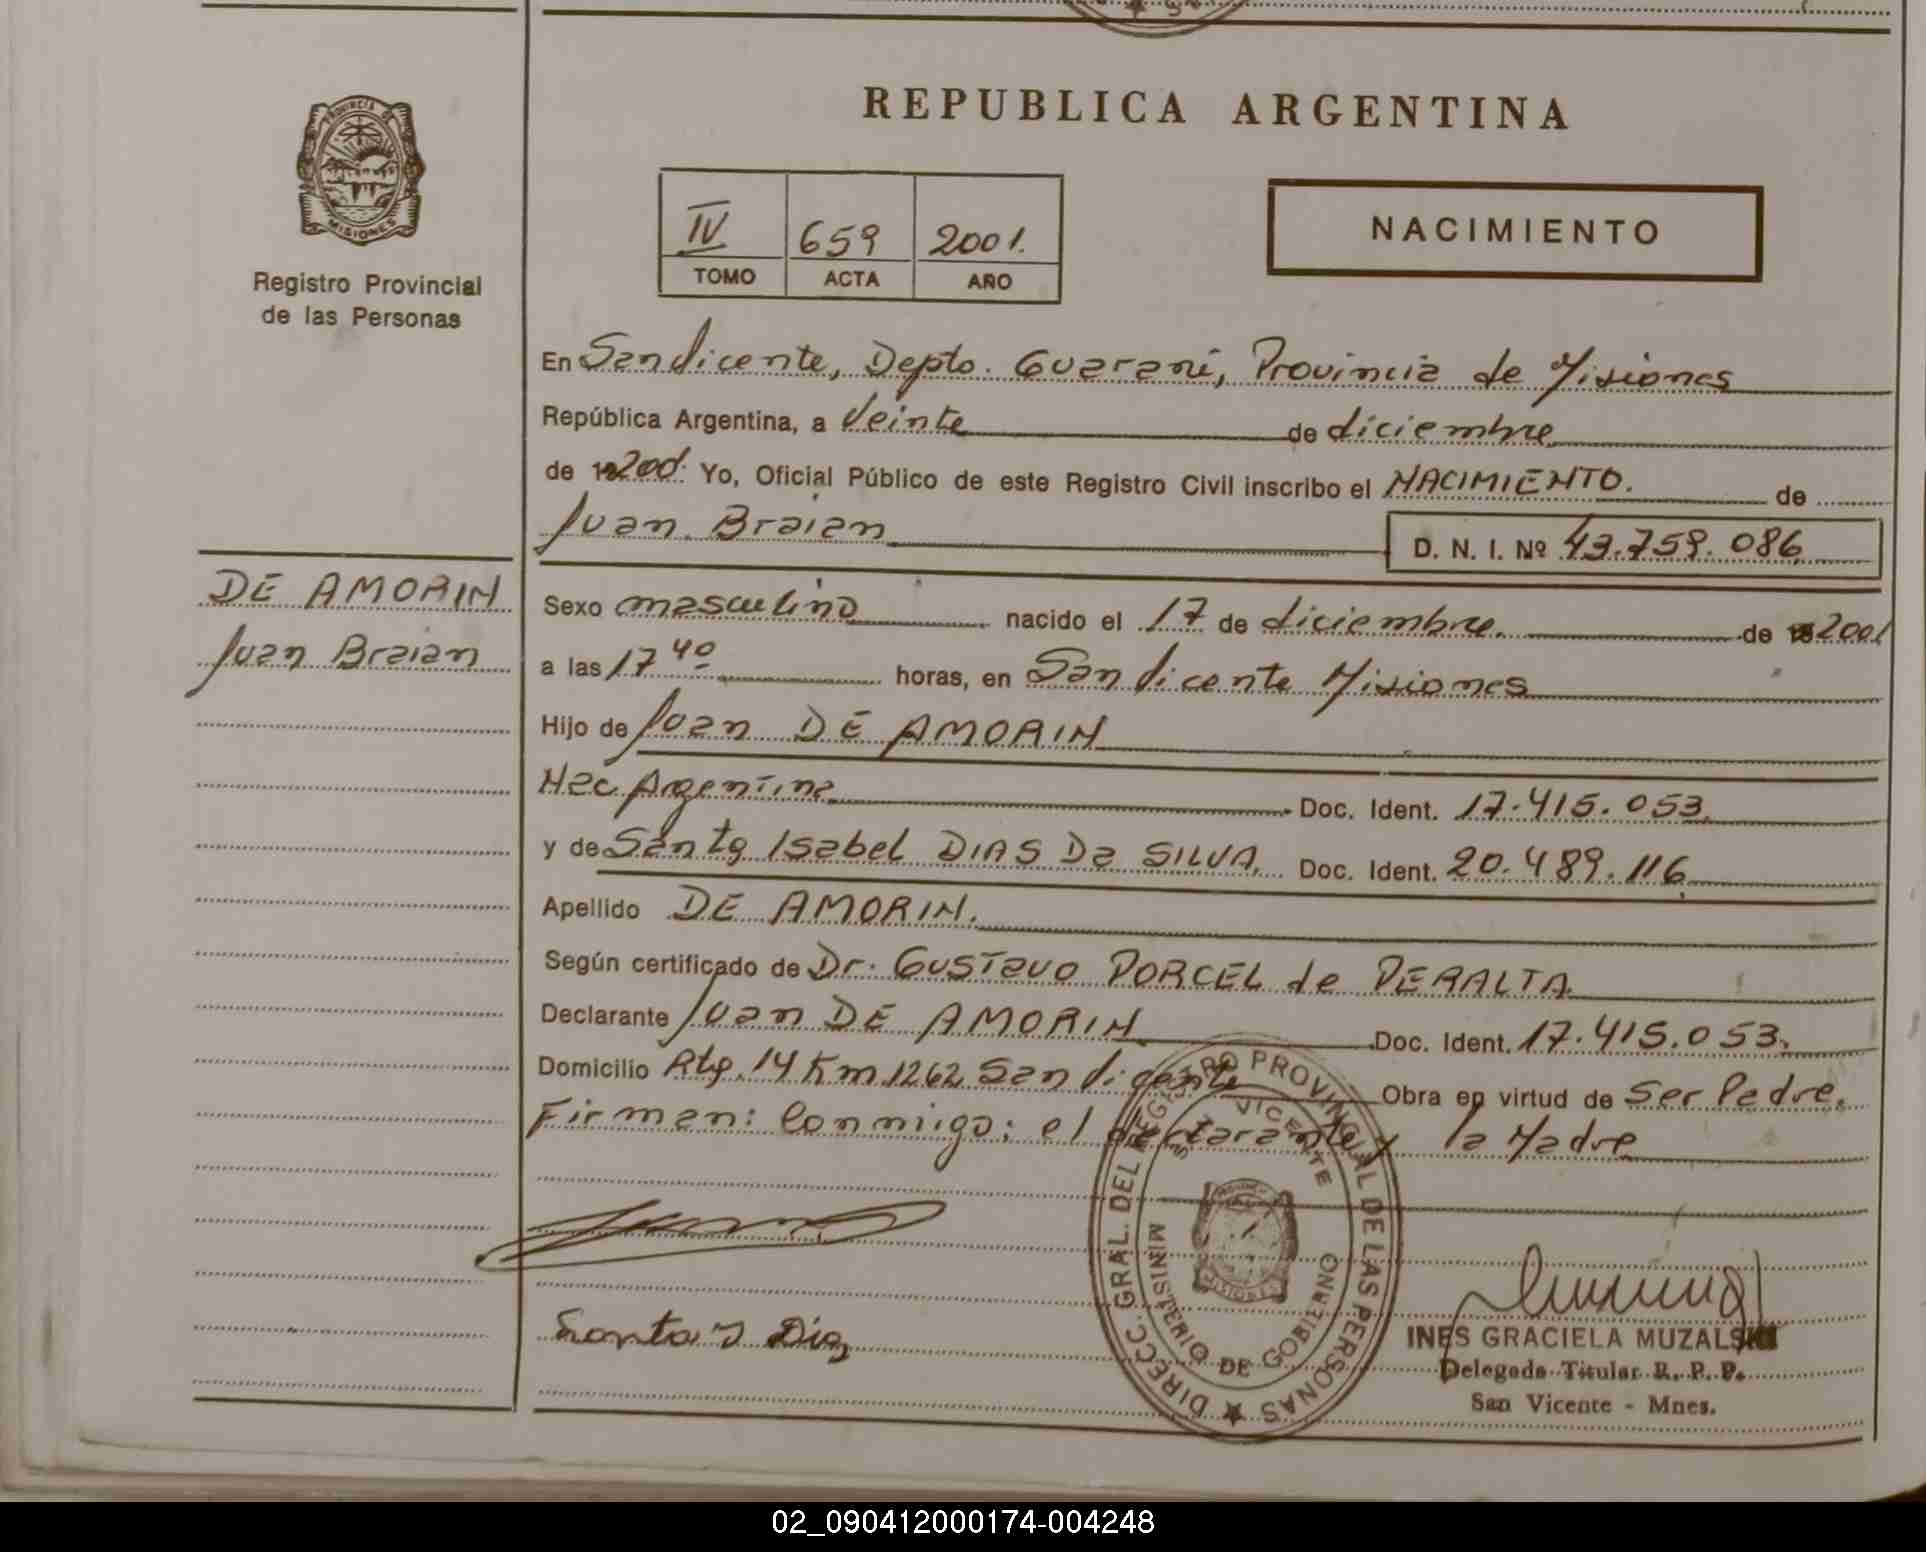 REPUBLICA ARGENTINA
PROVINCIA DE
MISIONES
Registro Provincial
de las Personas
IV 659 2001.
TOMO ACTA AÑO
NACIMIENTO
En San Vicente, Depto. Guaraní, Provincia de Misiones
República Argentina, a Veinte de diciembre
de 2001. Yo, Oficial Público de este Registro Civil inscribo el NACIMIENTO. de
Juan Braian D. N. I. Nº 43.759.086
DE AMORIN
Juan Braian
Sexo masculino nacido el 17 de diciembre. de 2001
a las 17 40 horas, en San Vicente Misiones
Hijo de Juan DE AMORIN
Nac Argentina Doc. Ident. 17.415.053.
y de Santa Isabel DIAS Da SILVA. Doc. Ident. 20.489.116
Apellido DE AMORIN.
Según certificado de Dr. GUSTavo PORCEL de PERALTA
Declarante Juan DE AMORIN Doc. Ident. 17.415.053.
Domicilio Rta. 14 Km 1262 San Vicente Obra en virtud de Ser Padre.
Firman: Conmigo: el declarante y la Madre
DIRECC. GRAL. DEL REGISTRO PROVINCIAL DE LAS PERSONAS
VICENTE
MINISTERIO DE GOBIERNO
MISIONES
INES GRACIELA MUZALSKI
Delegada Titular R. P. P.
San Vicente - Mnes.
02_090412000174-004248